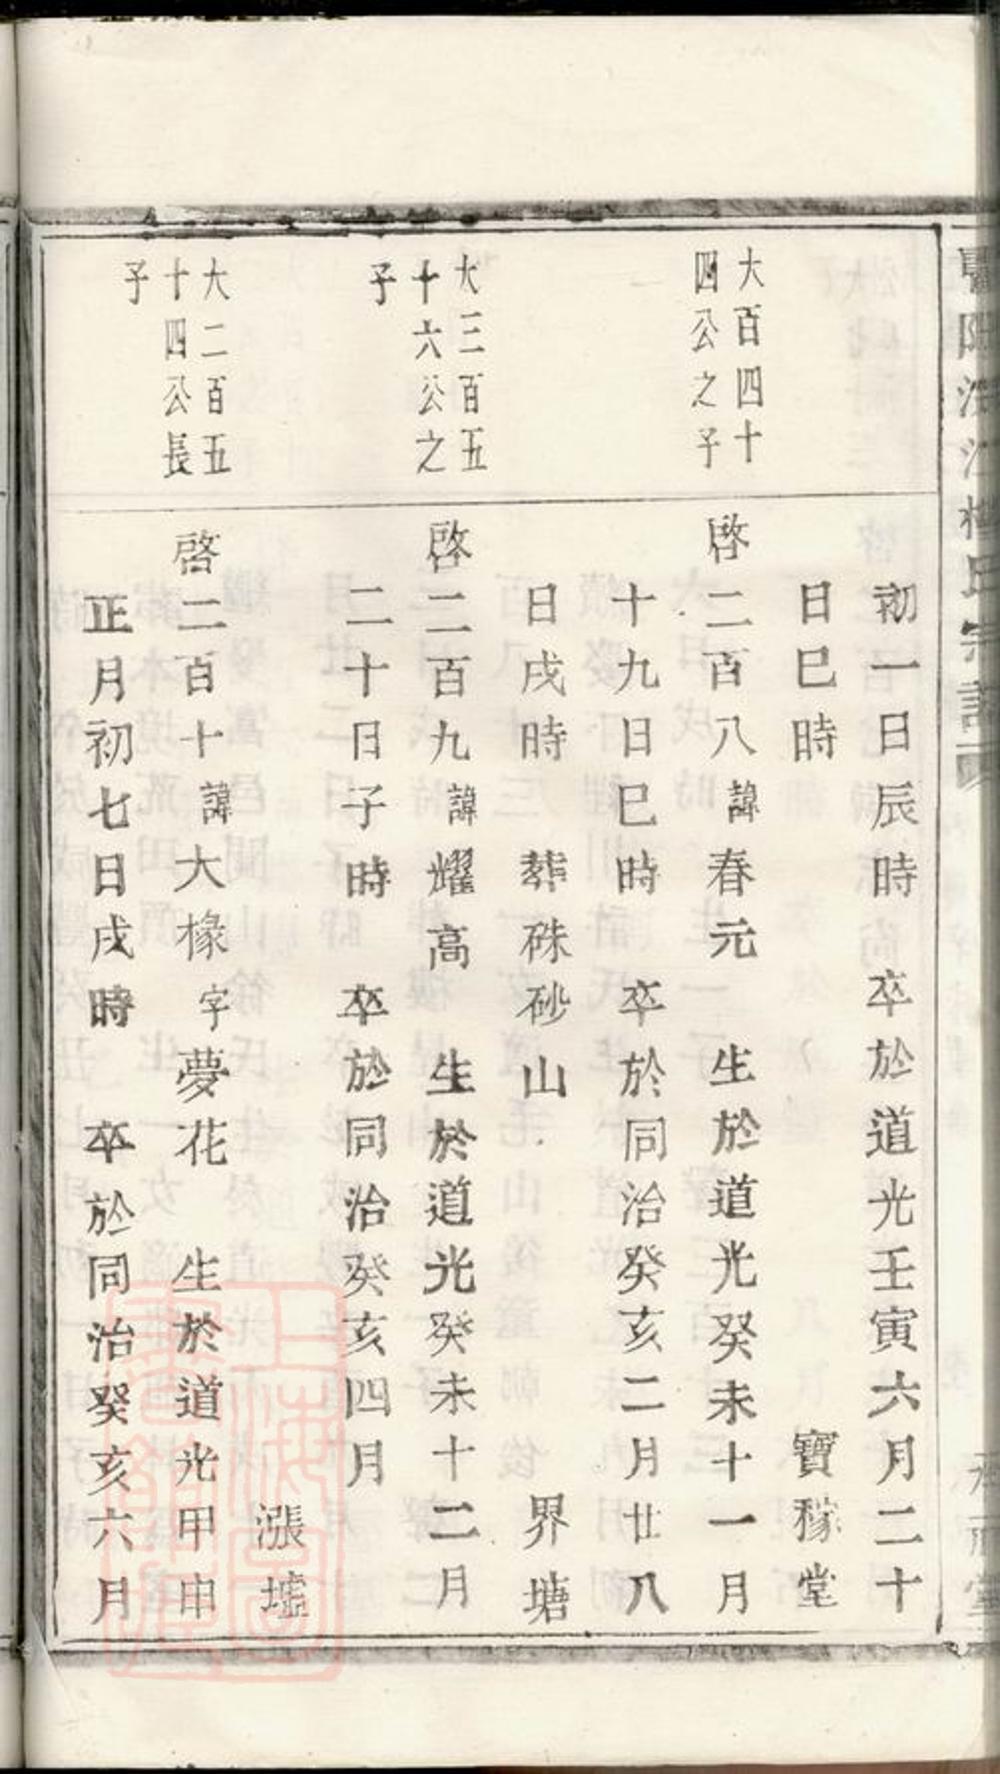 初一日辰時　卒於道光壬寅六月二十
日巳時　寶稼堂
大百四十
四公之子
啓二百八諱春元　生於道光癸未十一月
十九日巳時　卒於同治癸亥二月廿八
日戌時　葬硃砂山　界塘
大三百五
十六公之
子
啓二百九諱耀高　生於道光癸未十二月
二十日子時　卒於同治癸亥四月
漲墟
大二百五
十四公長
子
啓二百十諱大椽字夢花　生於道光甲申
正月初七日戌時　卒於同治癸亥六月